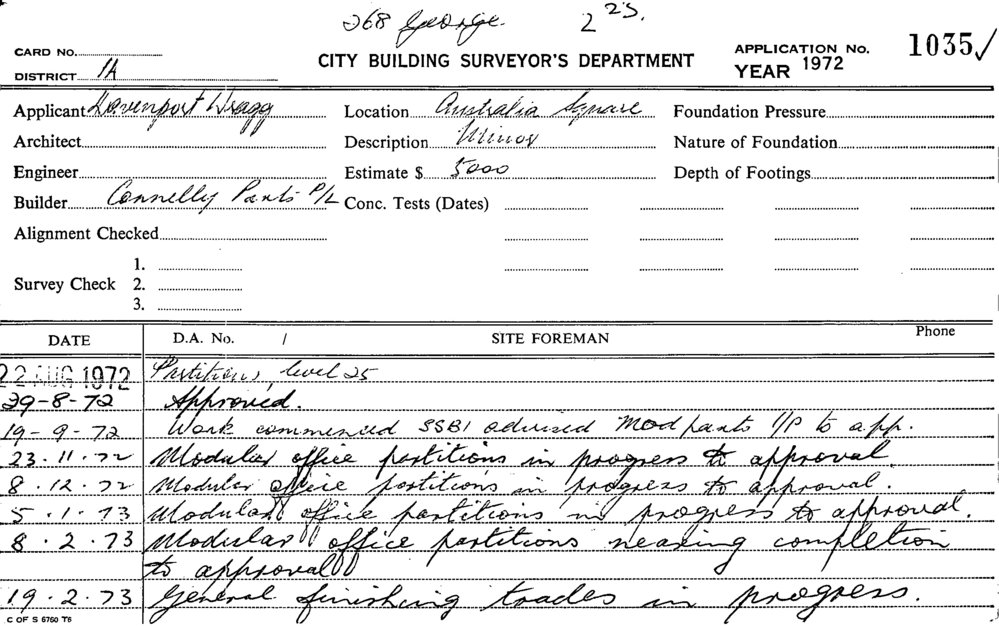 268 George. 2 23.
CARD No.
DISTRICT 1A
CITY BUILDING SURVEYOR'S DEPARTMENT
APPLICATION No. 1035/
YEAR 1972
Applicant Davenport Wragg Location Australia Square Foundation Pressure
Architect Description Minor Nature of Foundation
Engineer Estimate $ 5000 Depth of Footings
Builder Connelly Parts P/L Conc. Tests (Dates)
Alignment Checked
1.
Survey Check 2.
3.
DATE D.A. No. / SITE FOREMAN Phone
22 AUG 1972 Partitions, level 25
29-8-72 Approved.
19-9-72 Work commenced SSBI advised Mod parts I/P to app.
23.11.72 Modular office partitions in progress to approval
8.12.72 Modular office partitions in progress to approval.
5.1.73 Modular office partitions in progress to approval.
8.2.73 Modular office partitions nearing completion
to approval
19.2.73 General finishing trades in progress.
C OF S 6760 T6